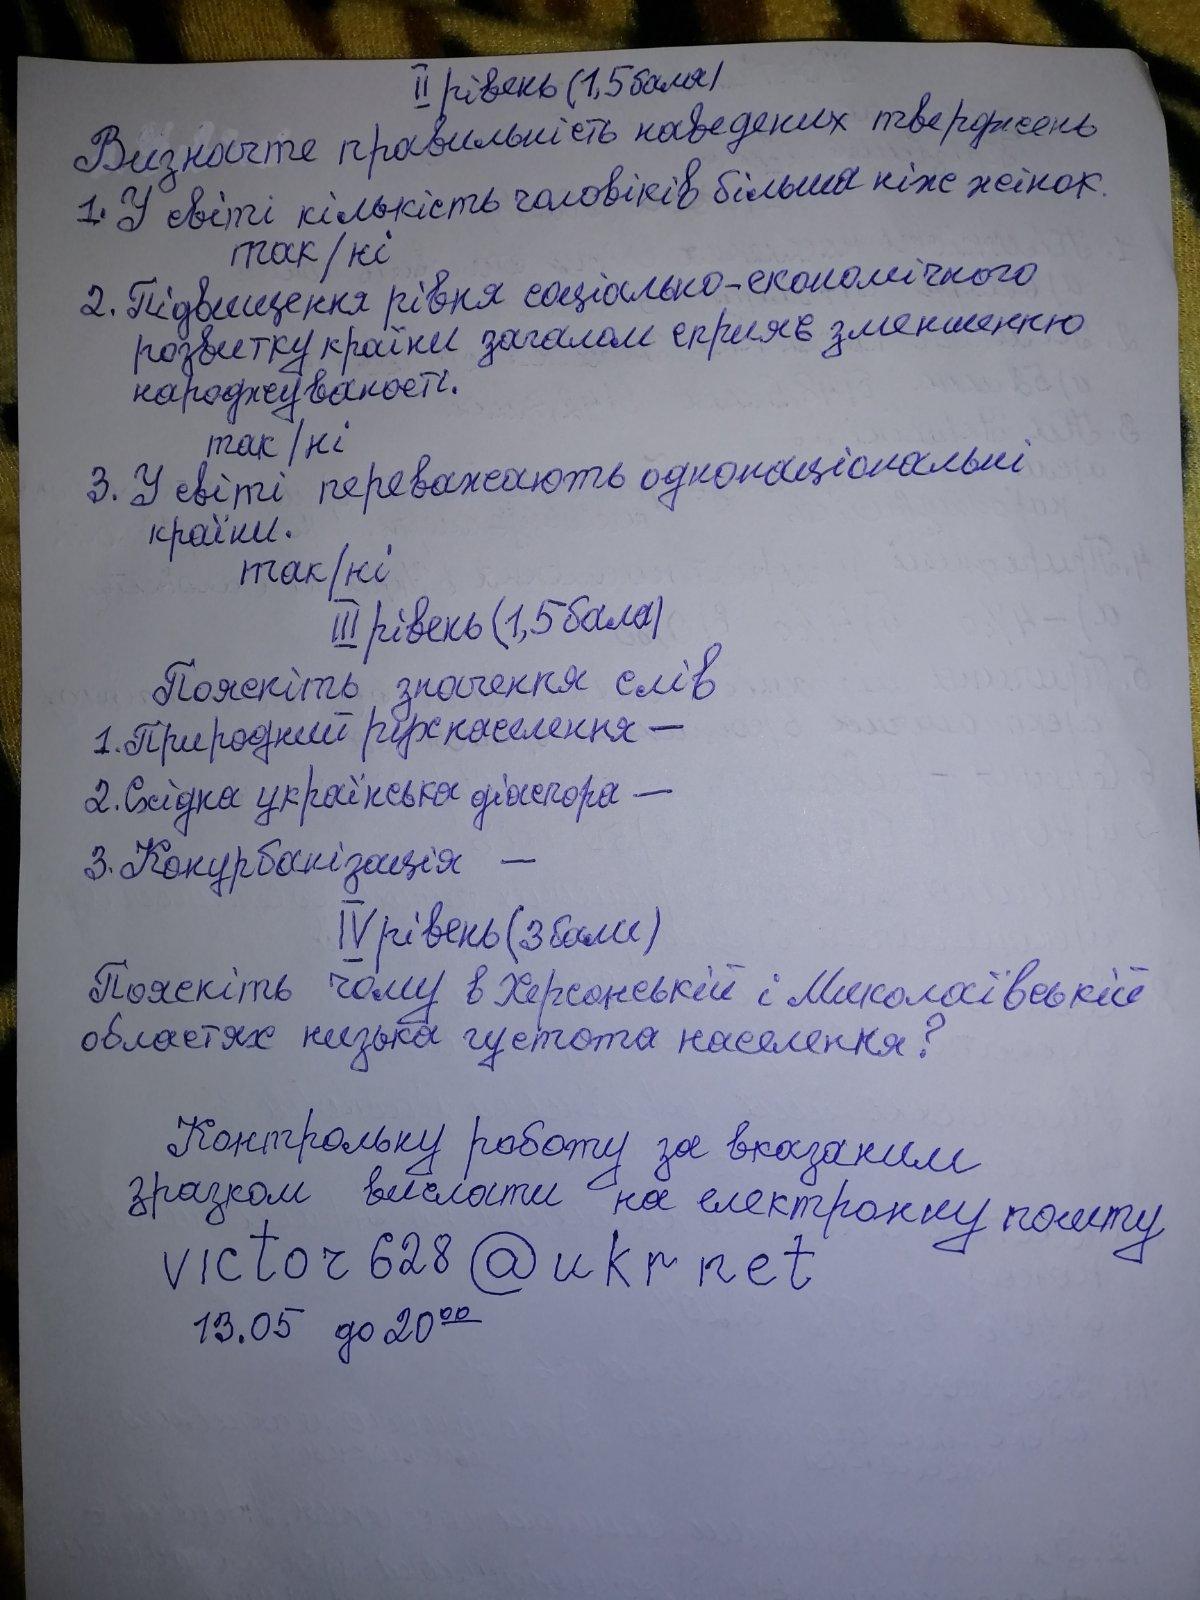 II рівень (1,5 бала)
Визначте правильність наведених тверджень
1. У світі кількість чоловіків більша ніж жінок.
так/ні
2. Підвищення рівня соціально-економічного
розвитку країни загалом сприяє зменшенню
народжуваності.
так/ні
3. У світі переважають однонаціональні
країни.
так/ні
III рівень (1,5 бала)
Поясніть значення слів
1. Природний рух населення —
2. Східна українська діаспора —
3. Конурбанізація —
IV рівень (3 бали)
Поясніть чому в Херсонській і Миколаївській
областях низька густота населення?
Контрольну роботу за вказаним
зразком вислати на електронну пошту
victor628@ukr net
13.05 до 20⁰⁰